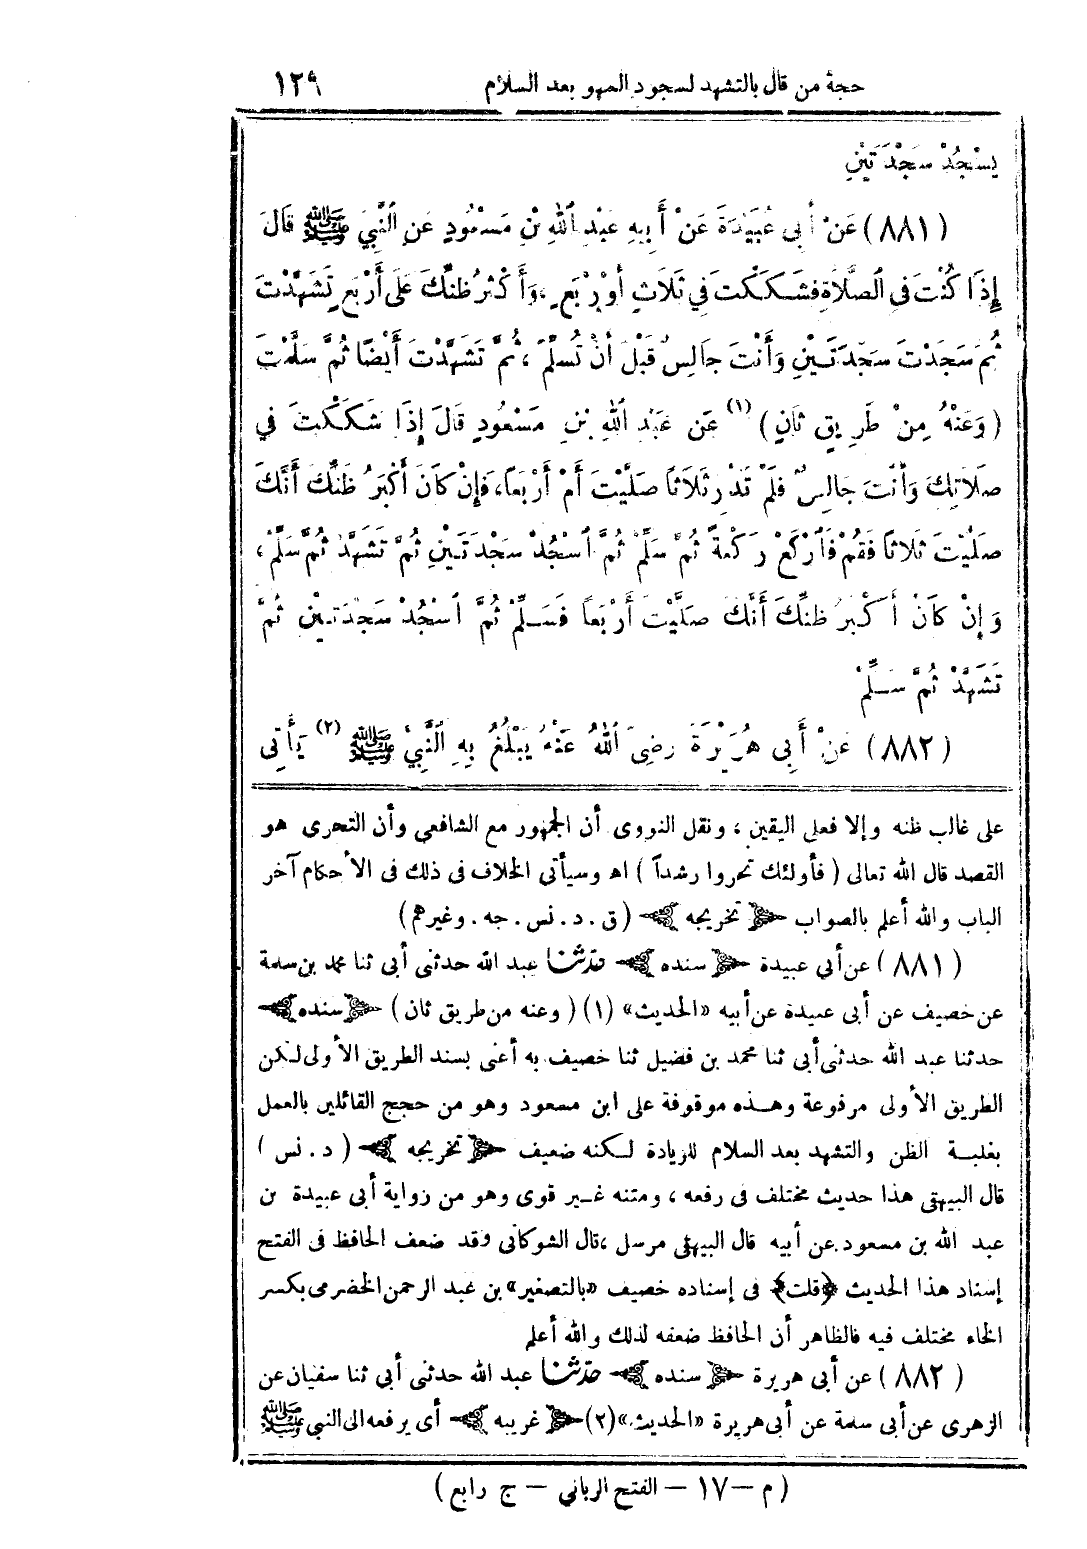 حجة من قال بالتشهد لسجود السهو بعد السلام ١٢٩
يَسْجُدْ سَجْدَتَيْنِ
(٨٨١) عَنْ أَبِي عُبَيْدَةَ عَنْ أَبِيهِ عَبْدِ اللهِ بْنِ مَسْعُودٍ عَنِ النَّبِيِّ ﷺ قَالَ
إِذَا كُنْتَ فِي الصَّلَاةِ فَشَكَكْتَ فِي ثَلَاثٍ أَوْ أَرْبَعٍ، وَأَكْثَرُ ظَنِّكَ عَلَى أَرْبَعٍ تَشَهَّدْتَ
ثُمَّ سَجَدْتَ سَجْدَتَيْنِ وَأَنْتَ جَالِسٌ قَبْلَ أَنْ تُسَلِّمَ، ثُمَّ تَشَهَّدْتَ أَيْضًا ثُمَّ سَلَّمْتَ
(وَعَنْهُ مِنْ طَرِيقٍ ثَانٍ)(١) عَنْ عَبْدِ اللهِ بْنِ مَسْعُودٍ قَالَ إِذَا شَكَكْتَ فِي
صَلَاتِكَ وَأَنْتَ جَالِسٌ فَلَمْ تَدْرِ ثَلَاثًا صَلَّيْتَ أَمْ أَرْبَعًا، فَإِنْ كَانَ أَكْبَرُ ظَنِّكَ أَنَّكَ
صَلَّيْتَ ثَلَاثًا فَقُمْ فَارْكَعْ رَكْعَةً ثُمَّ سَلِّمْ ثُمَّ اسْجُدْ سَجْدَتَيْنِ ثُمَّ تَشَهَّدْ ثُمَّ سَلِّمْ،
وَإِنْ كَانَ أَكْبَرُ ظَنِّكَ أَنَّكَ صَلَّيْتَ أَرْبَعًا فَسَلِّمْ ثُمَّ اسْجُدْ سَجْدَتَيْنِ ثُمَّ
تَشَهَّدْ ثُمَّ سَلِّمْ
(٨٨٢) عَنْ أَبِي هُرَيْرَةَ رَضِيَ اللهُ عَنْهُ يَبْلُغُ بِهِ النَّبِيَّ ﷺ (٢) يَأْتِي
على غالب ظنه وإلا فعلى اليقين، ونقل النووى أن الجمهور مع الشافعى وأن التحرى هو
القصد قال الله تعالى (فأولئك تحروا رشداً) اه وسيأتى الخلاف فى ذلك فى الأحكام آخر
الباب والله أعلم بالصواب ﴿تخريجه﴾ (ق. د. نس. جه. وغيرهم)
(٨٨١) عن أبي عبيدة ﴿سنده﴾ حدثنا عبد الله حدثنى أبى ثنا محمد بن سلمة
عن خصيف عن أبى عبيدة عن أبيه «الحديث» (١) (وعنه من طريق ثان) ﴿سنده﴾
حدثنا عبد الله حدثنى أبى ثنا محمد بن فضيل ثنا خصيف به أعنى بسند الطريق الأولى لكن
الطريق الأولى مرفوعة وهذه موقوفة على ابن مسعود وهو من حجج القائلين بالعمل
بغلبة الظن والتشهد بعد السلام للزيادة لكنه ضعيف ﴿تخريجه﴾ (د. نس)
قال البيهقى هذا حديث مختلف فى رفعه، ومتنه غير قوى وهو من رواية أبى عبيدة بن
عبد الله بن مسعود عن أبيه قال البيهقى مرسل، قال الشوكانى وقد ضعف الحافظ فى الفتح
إسناد هذا الحديث ﴿قلت﴾ فى إسناده خصيف «بالتصغير» بن عبد الرحمن الخضرمى بكسر
الخاء مختلف فيه فالظاهر أن الحافظ ضعفه لذلك والله أعلم
(٨٨٢) عن أبى هريرة ﴿سنده﴾ حدثنا عبد الله حدثنى أبى ثنا سفيان عن
الزهرى عن أبى سلمة عن أبى هريرة «الحديث» (٢) ﴿غريبه﴾ أى يرفعه الى النبى ﷺ
(م – ١٧ – الفتح الرباني – ج رابع)